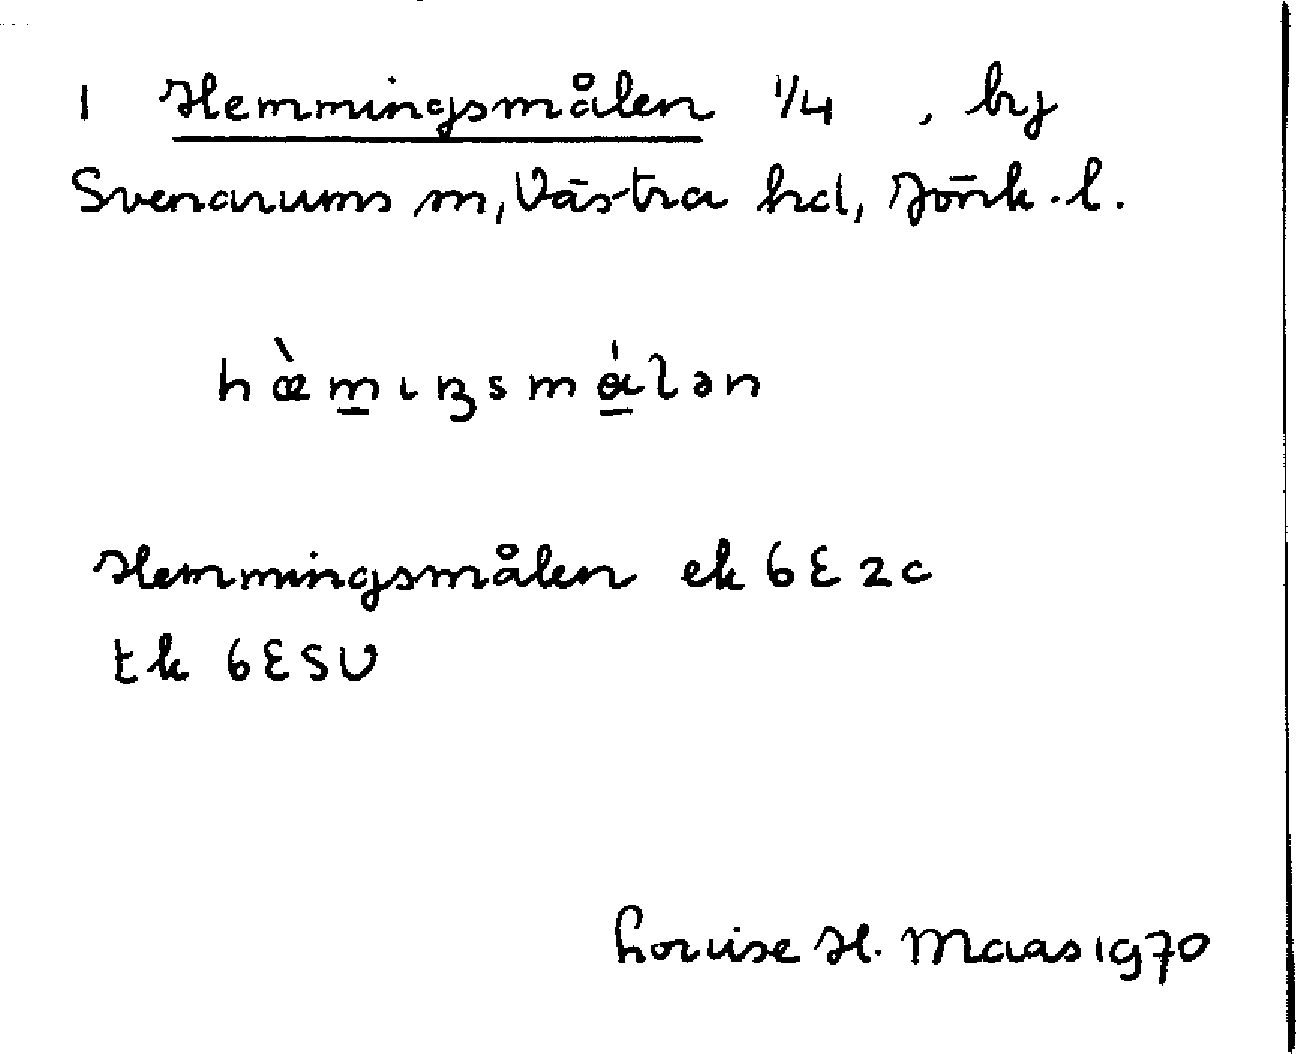 1 Hemmingsmålen 1/4 , by
Svenarums sn, Västra hd, Jönk. l.
hæ̀m̲ıŋsmɑ̲́lən
Hemmingsmålen ek 6E2c
tk 6ESV
Louise H. Maas 1970